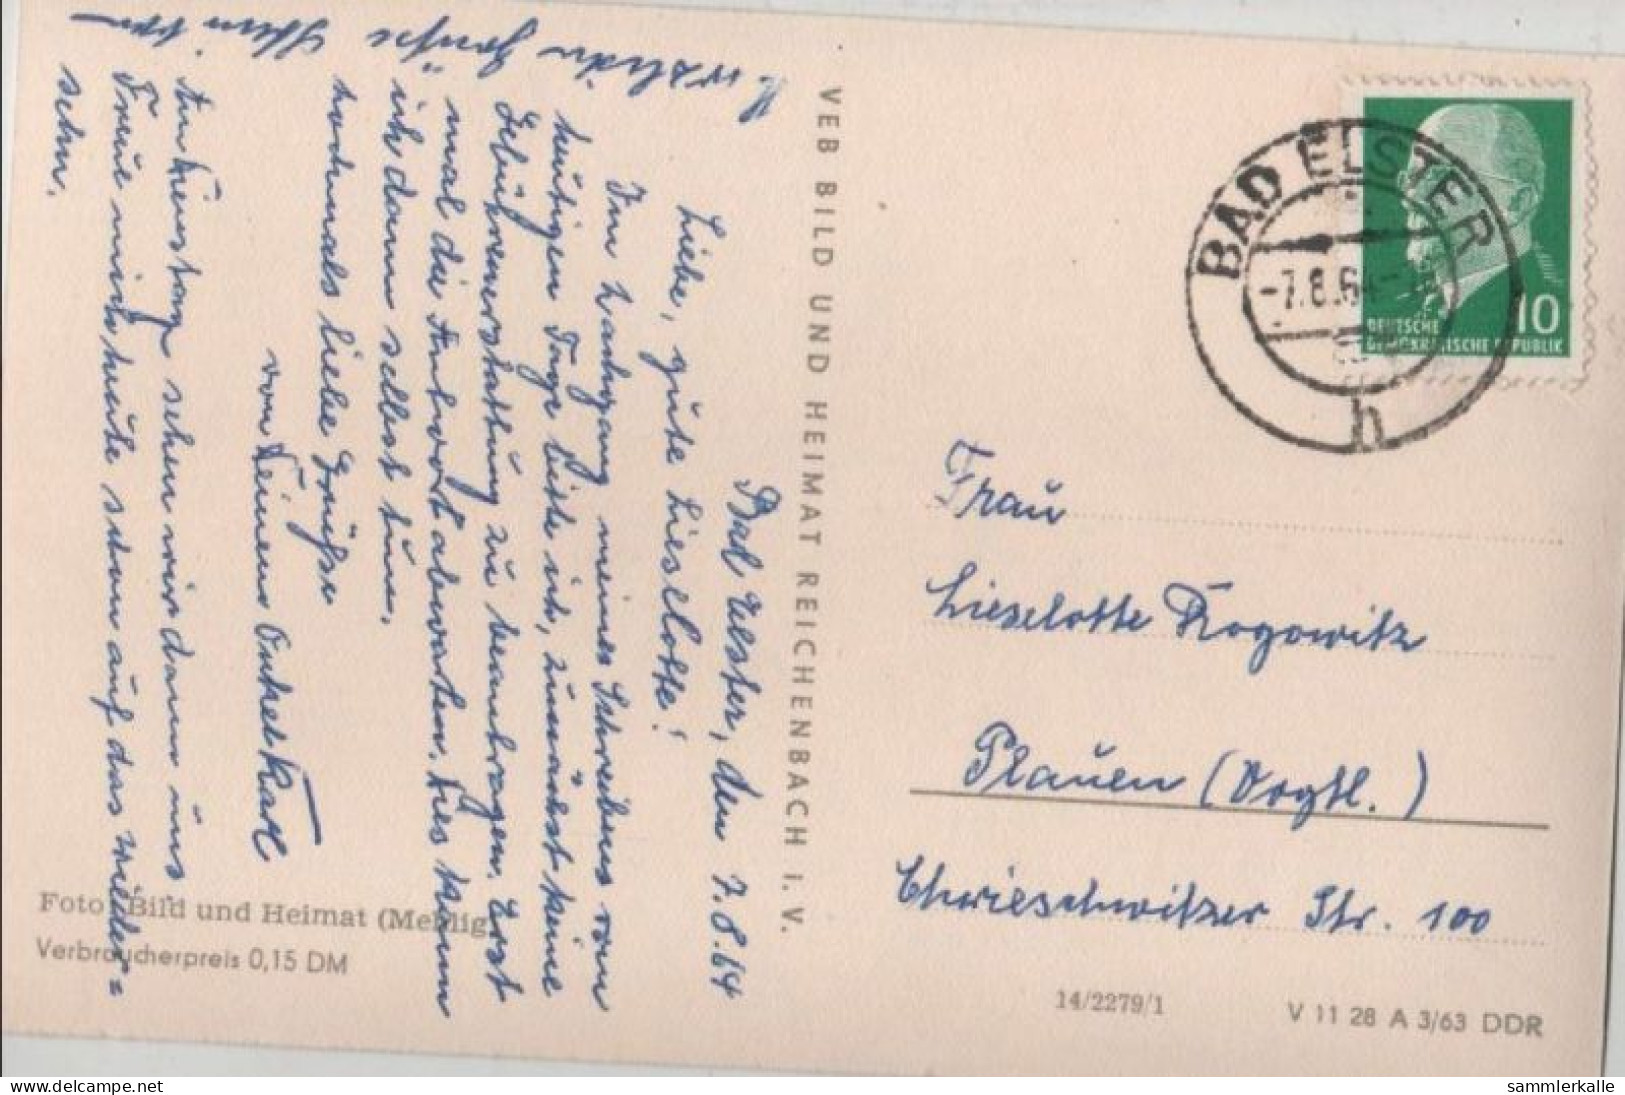 Bad Elster, den 7.8.64
Liebe, gute Lieselotte!
Im Nachgang meines Schreibens vom
heutigen Tage bitte ich, zunächst keine
Gebührenerstattung zu beantragen. Erst
mal die Antwort abwarten. Dies kann
ich dann selbst tun.
Nochmals liebe Grüße
von Deinem Onkel Karl
Am Dienstag sehen wir dann uns
Freue mich heute schon auf das Wieder=
sehn.
Herzliche Grüße
VEB BILD UND HEIMAT REICHENBACH I. V.
Foto: Bild und Heimat (Mehlig)
Verbraucherpreis 0,15 DM
BAD ELSTER
-7.8.64-
h
10
DEUTSCHE
DEMOKRATISCHE REPUBLIK
Frau
Lieselotte Rogowitz
Plauen (Vogtl.)
Chrieschwitzer Str. 100
14/2279/1
V 11 28 A 3/63 DDR
www.delcampe.net
sammlerkalle